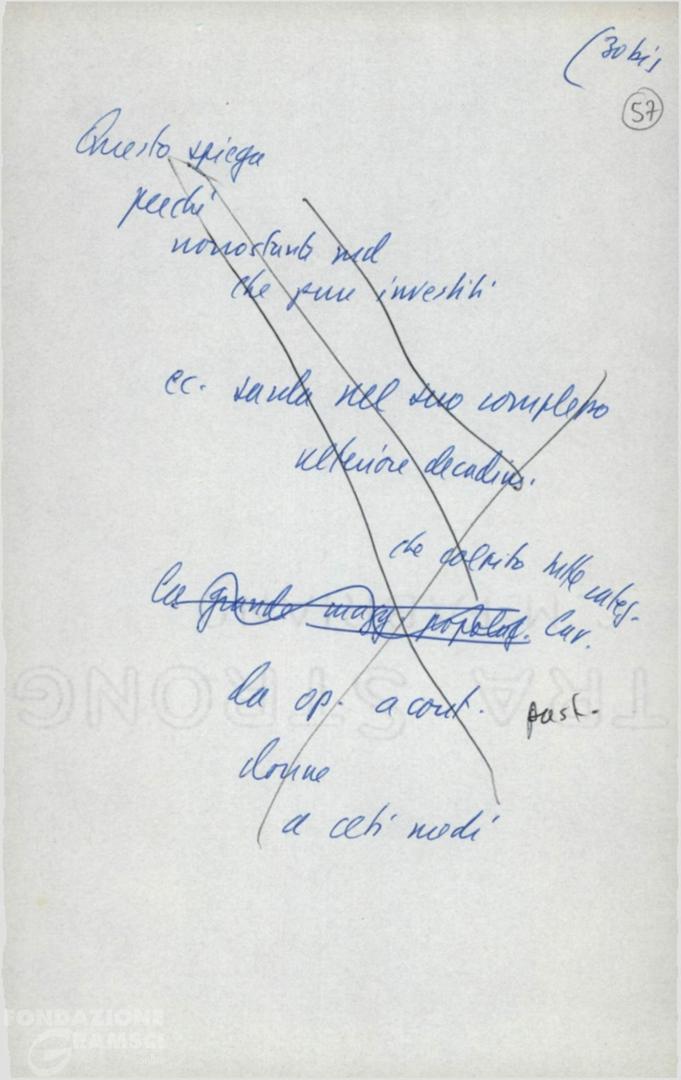 (30 bis
57
Questo spiega
perché
nonostante md
che pure investiti
ec. sarda nel suo complesso
ulteriore decadim.
che colpito tutte categ.
la grande magg popolaz. lav.
da op. a cont. past.
donne
a ceti medi
EXTRA STRONG
FONDAZIONE
GRAMSCI